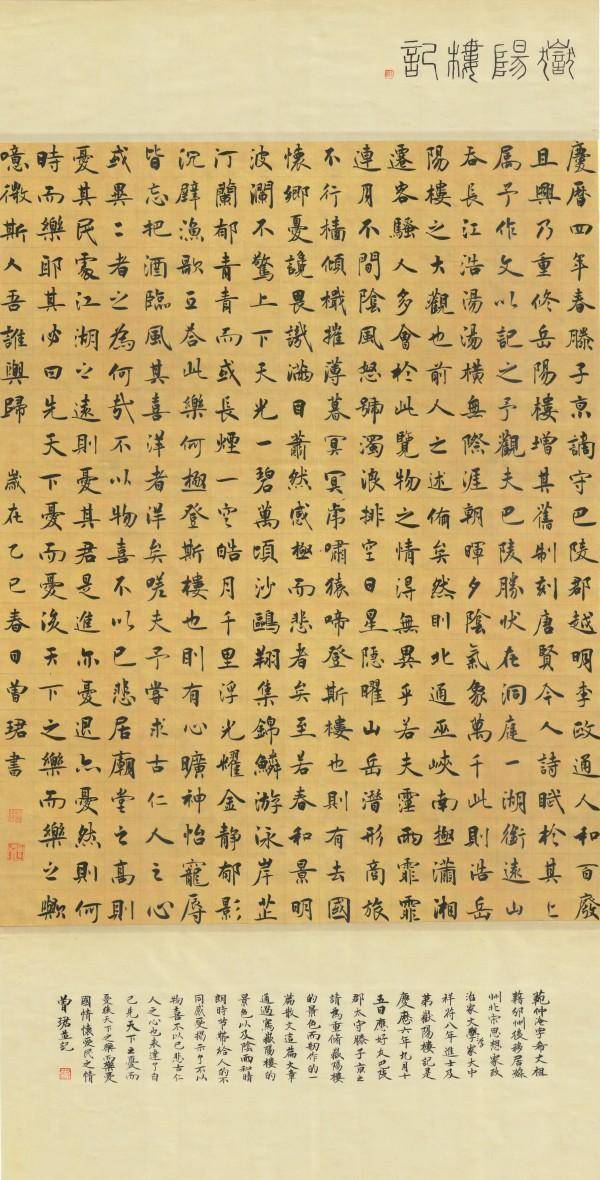 嶽陽樓記
慶曆四年春滕子京謫守巴陵郡越明秊政通人和百廢
且興乃重修岳陽樓增其舊制刻唐賢今人詩賦於其上
属予作文以記之予觀夫巴陵勝状在洞庭一湖銜遠山
吞長江浩湯湯橫無際涯朝暉夕陰氣象萬千此則浩岳
陽樓之大觀也前人之述俻矣然則北通巫峽南極瀟湘
遷客騷人多會於此覽物之情得無異乎若夫霪雨霏霏
連月不開陰風怒號濁浪排空日星隱曜山岳潛形商旅
不行檣傾檝摧薄暮冥冥虎嘯猿啼登斯樓也則有去國
懷鄉憂讒畏譏滿目蕭然感極而悲者矣至若春和景明
波瀾不驚上下天光一碧萬頃沙鷗翔集錦鱗游泳岸芷
汀蘭郁青青而或長煙一空皓月千里浮光耀金静郁影
沉璧漁歌互荅此樂何極登斯樓也則有心曠神怡寵辱
皆忘把酒臨風其喜洋者洋矣嗟夫予嘗求古仁人之心
或異二者之為何哉不以物喜不以己悲居廟堂之高則
憂其民處江湖之遠則憂其君是進亦憂退亦憂然則何
時而樂耶其必曰先天下憂而憂後天下之樂而樂之歟
噫微斯人吾誰與歸 歲在乙巳春日曾珺書
範仲淹字希文祖
籍邠州後移居蘇
州北宋思想家政
治家文學家大中
祥符八年進士及
第嶽陽樓記是
慶應六年九月十
五日應好友巴陵
郡太守滕子京之
請為重脩嶽陽樓
的景色而創作的一
篇散文這篇文章
通過寫嶽陽樓的
景色以及陰雨和晴
朗時帶給人的不
同感受揭示了不以
物喜不以己悲古仁
人之心也表達了自
己先天下之憂而
憂後天下之樂而樂愛
國情懷愛民之情
曾珺並記